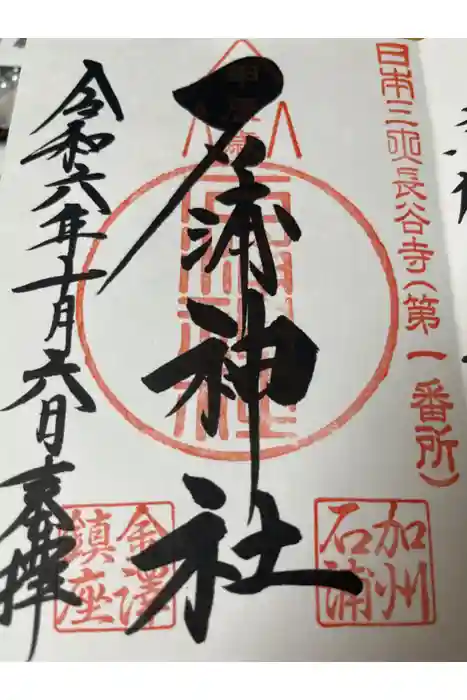 日本三大長谷寺(第一番所)
石浦神社
加州
石浦
金澤
鎮座
令和六年十月六日奉拝